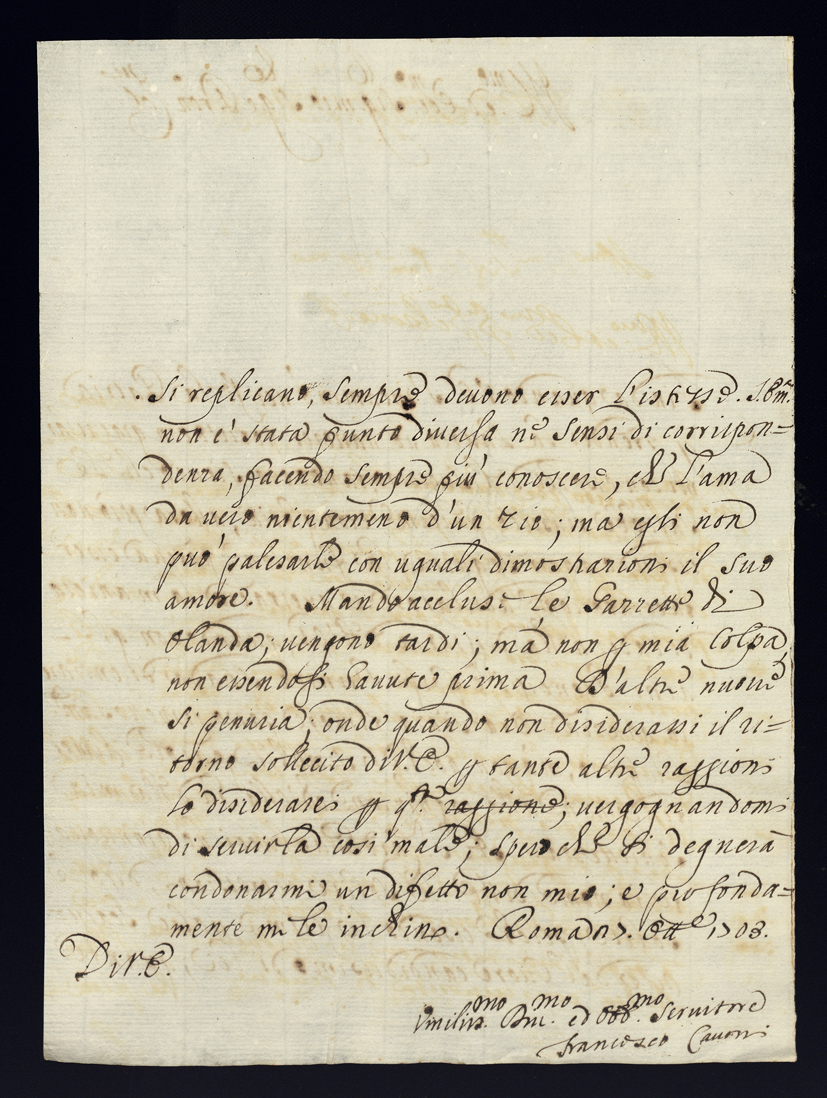 Si replicano, sempre devono esser l'istesse. S. Em.
non e' stata punto diversa ne sensi di corrispon=
denza, facendo sempre piu' conoscere, che l'ama
da vero nientemeno d'un zio; ma egli non
puo' palesarle con uguali dimostrazioni il suo
amore. Mando accluse le Gazzette di
Olanda; vengono tardi; ma non p mia colpa,
non essendosi havute prima D'altre nuove
si penuria; onde quando non disiderassi il ri=
torno sollecito di V. E. p tante altre raggioni
lo disiderarei p q.sta raggione; vergognandomi
di servirla cosi male; spero che si degnerà
condonarmi un difetto non mio; e profonda=
mente me le inchino. Roma 1708.
Di V. E.
Umiliss.mo Dev.mo ed Obb.mo Servitore
Francesco